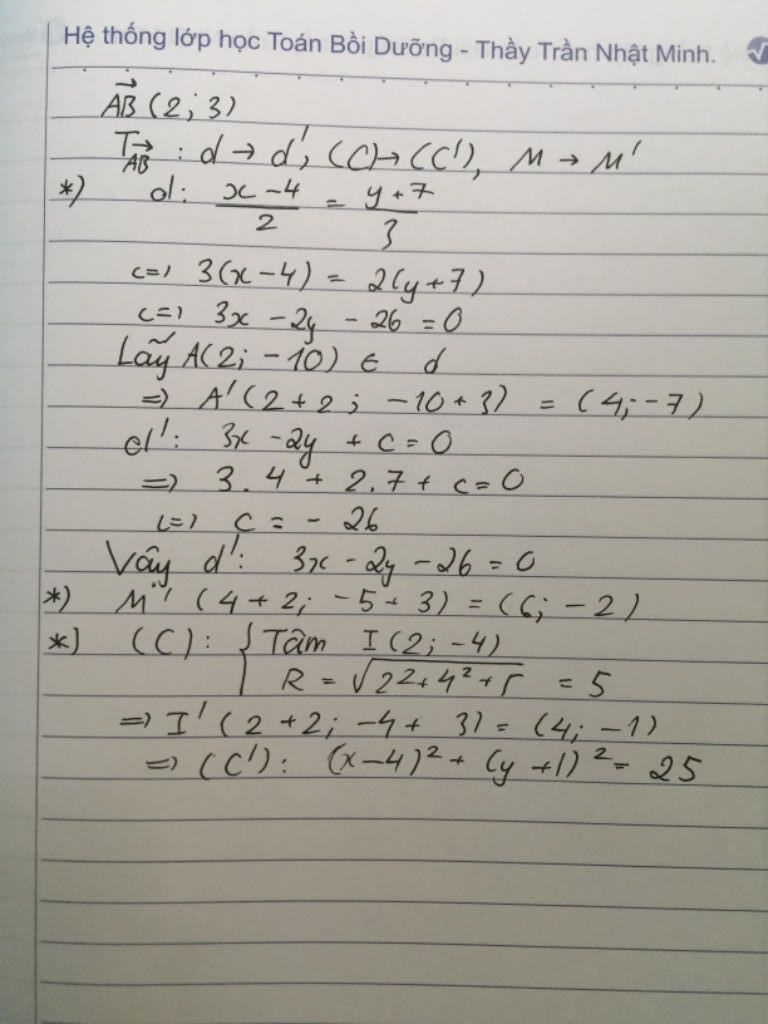 Hệ thống lớp học Toán Bồi Dưỡng - Thầy Trần Nhật Minh.
$\overrightarrow{AB}$ (2; 3)
$T_{\overrightarrow{AB}}$ : d → d', (C) → (C'), M → M'
*) d: $\frac{x-4}{2} = \frac{y+7}{3}$
<=> 3(x-4) = 2(y+7)
<=> 3x - 2y - 26 = 0
Lấy A(2; -10) ∈ d
=> A'(2+2; -10+3) = (4; -7)
d': 3x - 2y + c = 0
=> 3.4 + 2.7 + c = 0
<=> c = - 26
Vậy d': 3x - 2y - 26 = 0
*) M' (4+2; -5+3) = (6; -2)
*) (C): { Tâm I(2; -4)
R = $\sqrt{2^2+4^2+5}$ = 5
=> I' (2+2; -4+3) = (4; -1)
=> (C'): (x-4)² + (y+1)² = 25